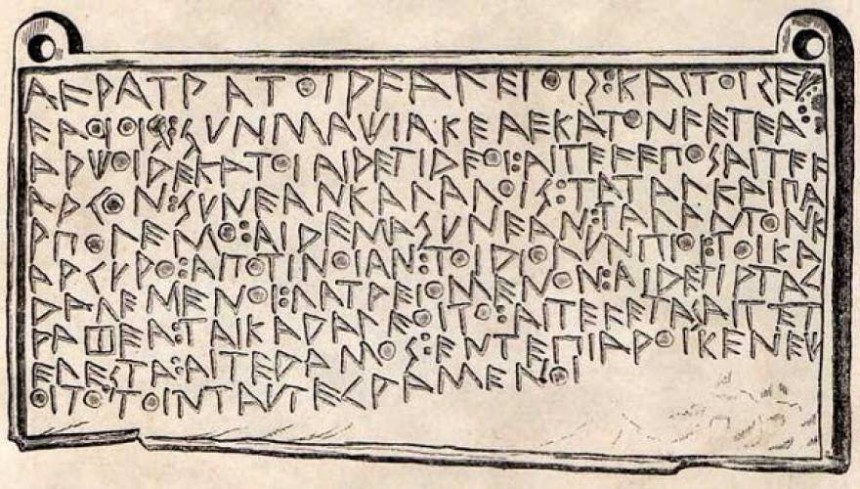 ΑϜΡΑΤΡΑΤΟΙΡϜΑΛΕΙΟΙΣ:ΚΑΙΤΟΙΣΕ
ϜΑΟΙΟΙΣ:ΣΥΝΜΑΨΙΑΚΕΑΕΚΑΤΟΝϜΕΤΕΑ:
ΑΡΨΟΙΔΕΚΑΤΟΙΑΙΔΕΤΙΔΕΟΙ:ΑΙΤΕϜΕΠΟΣΑΙΤΕϜ
ΑΡΓΟΝ:ΣΥΝΕΑΝΚΑΛΑΛΟΙΣ:ΤΑΤΑΛΚΑΙΠΑ
ΡΠΟΛΕΜΟ:ΑΙΔΕΜΑΣΥΝΕΑΝ:ΤΑΛΑΝΤΟΝΚ
ΑΡΓΥΡΟ:ΑΠΟΤΙΝΟΙΑΝ:ΤΟΙΔΙΟΛΥΝΠΙΟ:ΤΟΙΚΑ
ΔΑΛΕΜΕΝΟΙ:ΛΑΤΡΕΙΟΜΕΝΟΝ:ΑΙΔΕΤΙΡΤΑΓ
ΡΑΦΕΑ:ΤΑΙΚΑΔΑΛΕΟΙΤΟ:ΑΙΤΕϜΕΤΑΣΑΙΤΕΤ
ΕΛΕΣΤΑ:ΑΙΤΕΔΑΜΟΣ:ΕΝΤΕΠΙΑΡΟΙΚΕΝΕΨ
ΟΙΤΟΤΟΙΝΤΑΥΤΕΓΡΑΜΕΝΟΙ